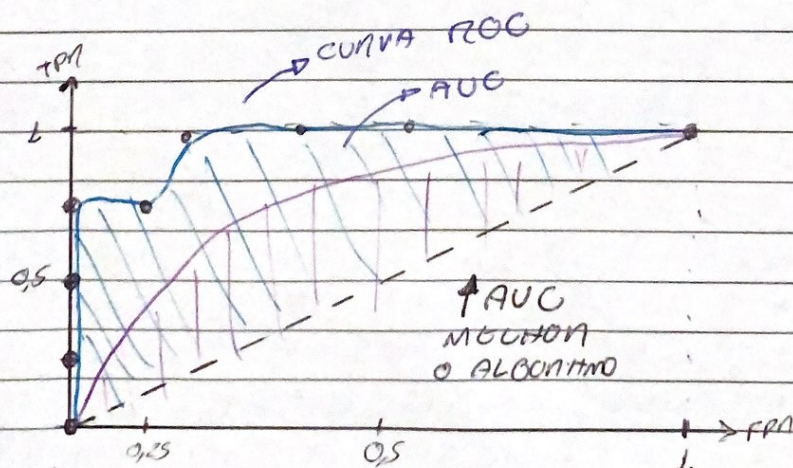 CURVA ROC
AUC
TPR
1
0,5
↑ AUC
MELHOR
O ALGORITMO
0,25
0,5
1
FPR